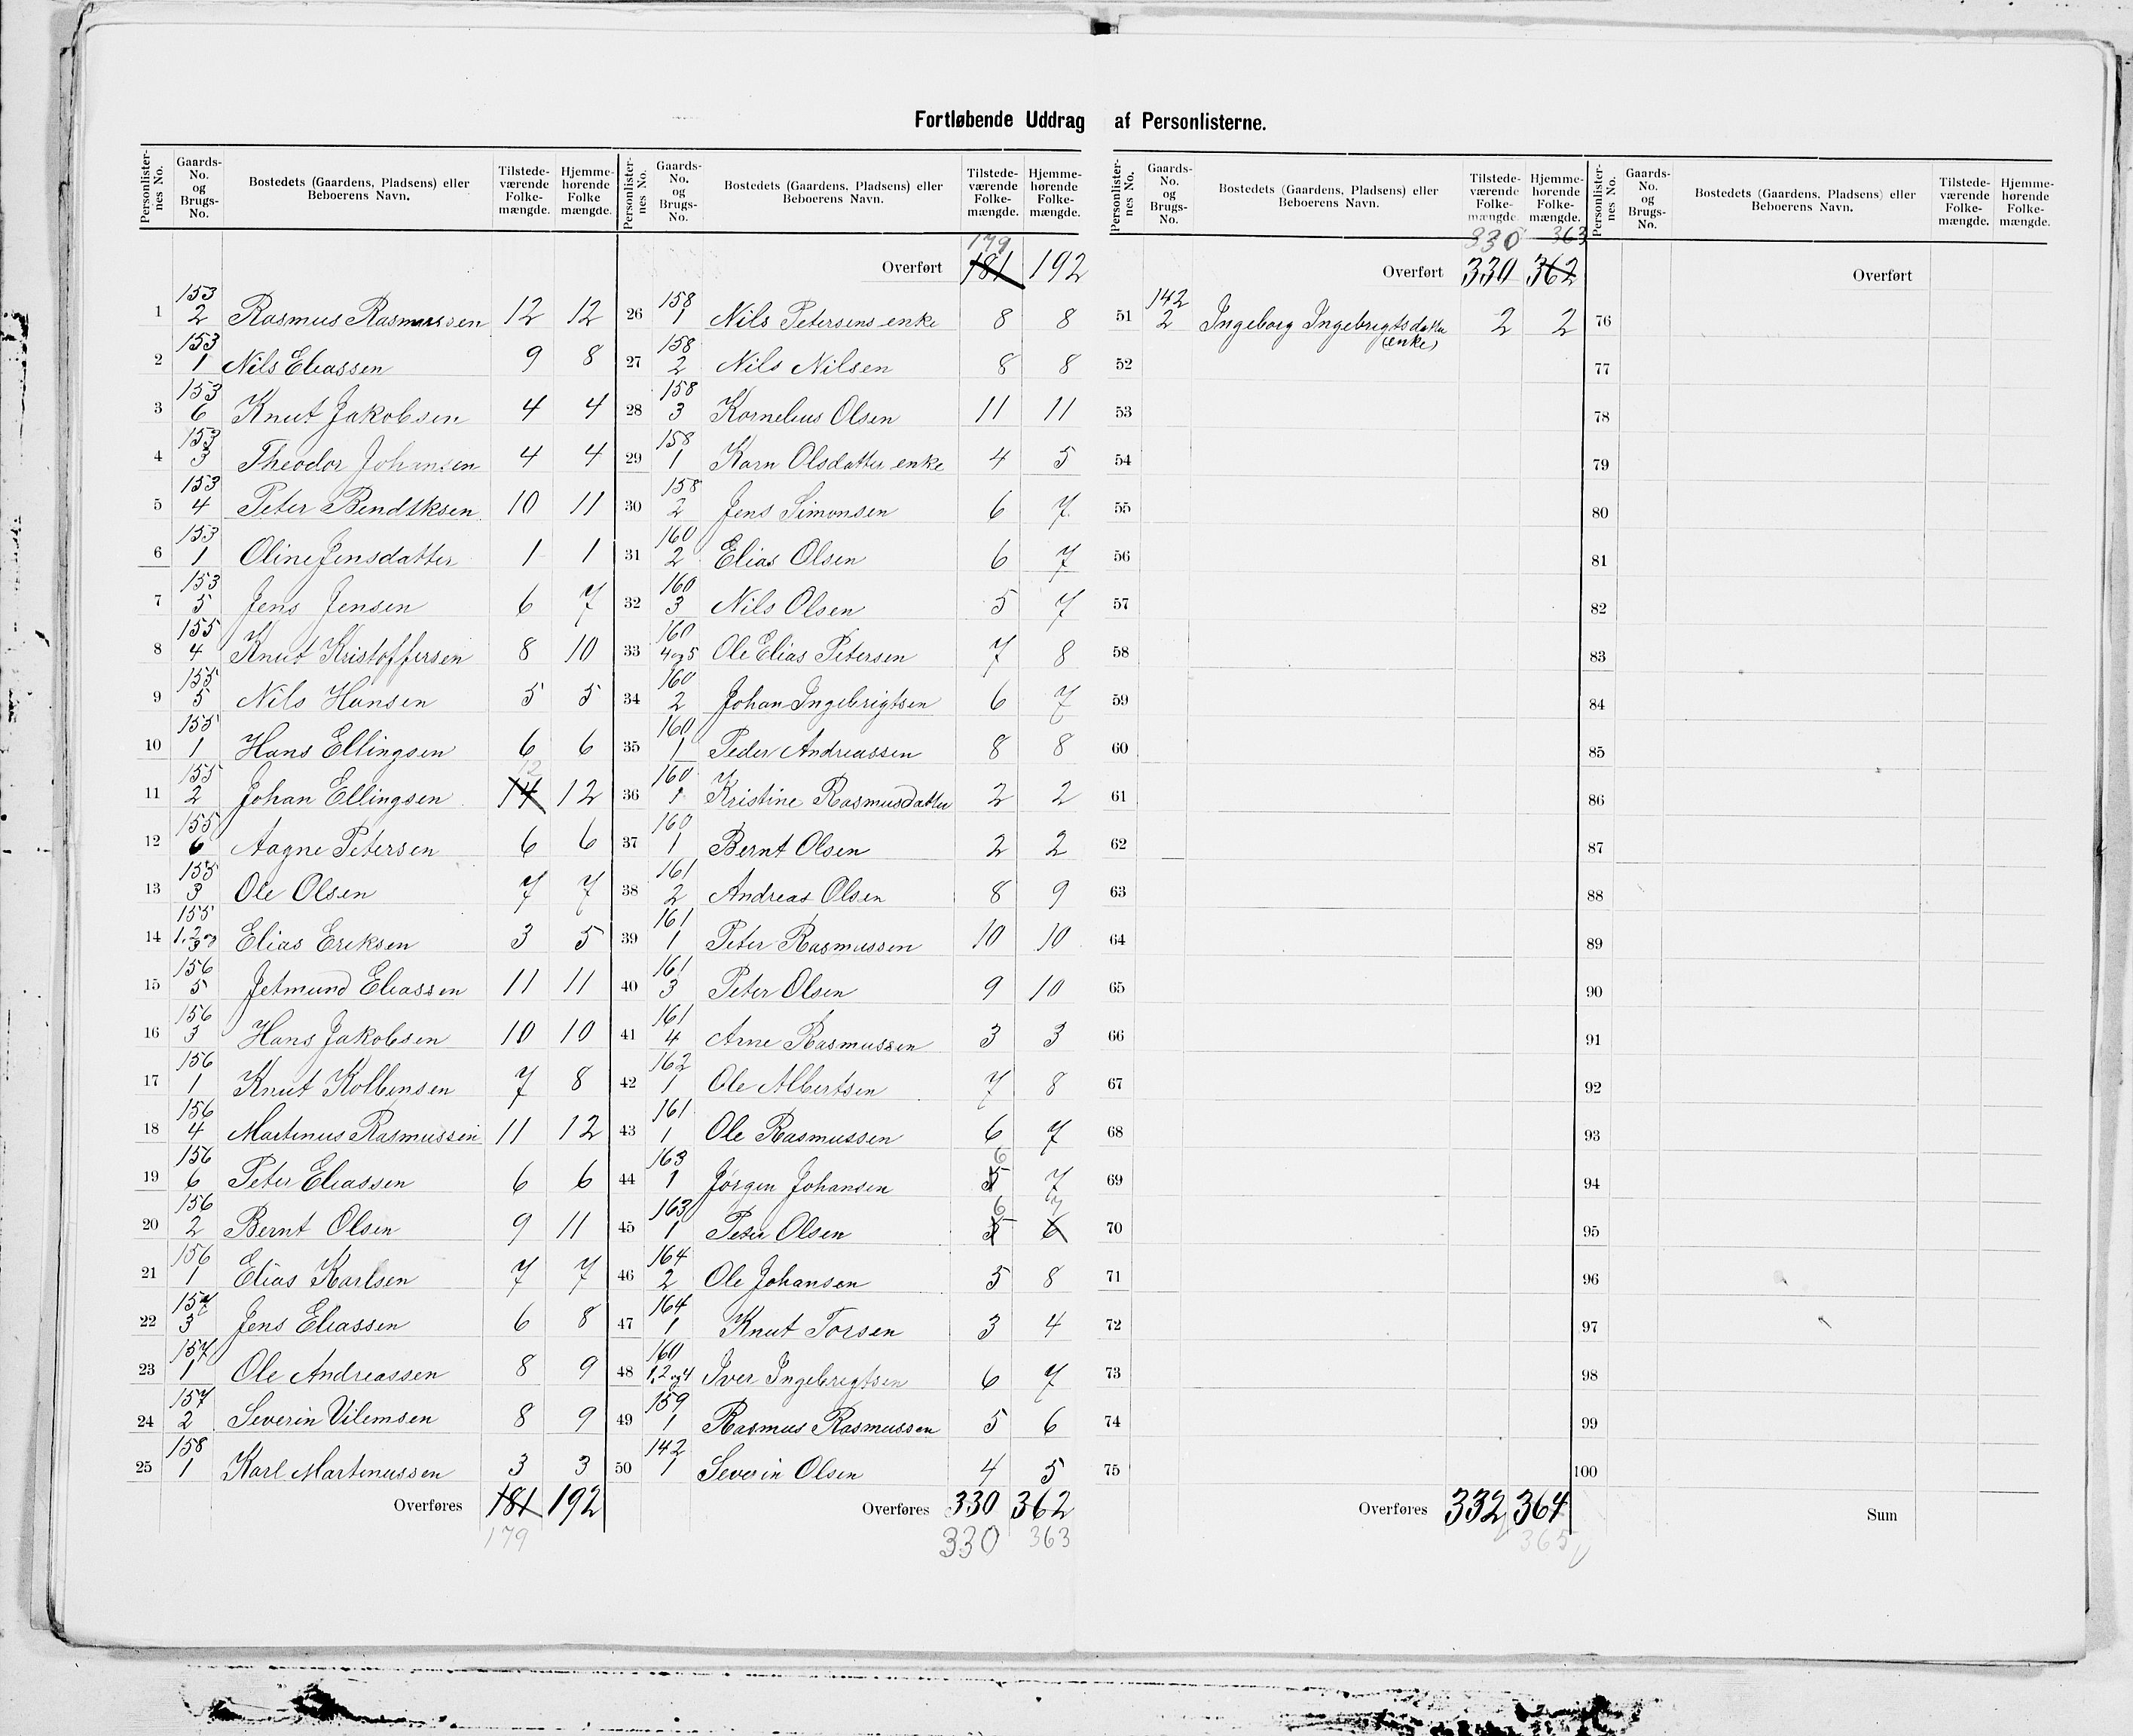 Fortløbende Uddrag af Personlisterne.
Personlister-nes No. Gaards-No. og Brugs-No. Bostedets (Gaardens, Pladsens) eller Beboerens Navn. Tilstede-værende Folke-mængde. Hjemme-hørende Folke mængde.
1 153 2 Rasmus Rasmussen 12 12
2 153 1 Nils Eliassen 9 8
3 153 6 Knut Jakobsen 4 4
4 153 3 Theodor Johansen 4 4
5 153 4 Peter Bendiksen 10 11
6 153 1 Oline Jensdatter 1 1
7 153 5 Jens Jensen 6 7
8 155 4 Knut Kristoffersen 8 10
9 155 5 Nils Hansen 5 5
10 155 1 Hans Ellingsen 6 6
11 155 2 Johan Ellingsen 14 12 12
12 155 6 Aagne Petersen 6 6
13 155 3 Ole Olsen 7 7
14 155 1,2og3 Elias Eriksen 3 5
15 156 5 Jetmund Eliassen 11 11
16 156 3 Hans Jakobsen 10 10
17 156 1 Knut Kolbensen 7 8
18 156 4 Martinus Rasmussen 11 12
19 156 6 Peter Eliassen 6 6
20 156 2 Bernt Olsen 9 11
21 156 1 Elias Karlsen 7 7
22 157 3 Jens Eliassen 6 8
23 157 1 Ole Andreassen 8 9
24 157 2 Severin Vilemsen 8 9
25 158 1 Karl Martinussen 3 3
Overføres 181 192
179
Personlister-nes No. Gaards-No. og Brugs-No. Bostedets (Gaardens, Pladsens) eller Beboerens Navn. Tilstede-værende Folke-mængde. Hjemme-hørende Folke-mængde.
179
Overført 181 192
26 158 1 Nils Petersens enke 8 8
27 158 2 Nils Nilsen 8 8
28 158 3 Kornelius Olsen 11 11
29 158 1 Karn Olsdatter enke 4 5
30 158 2 Jens Simonsen 6 7
31 160 2 Elias Olsen 6 7
32 160 3 Nils Olsen 5 7
33 160 4og5 Ole Elias Petersen 7 8
34 160 2 Johan Ingebrigtsen 6 7
35 160 1 Peder Andreassen 8 8
36 160 1 Kristine Rasmusdatter 2 2
37 160 1 Bernt Olsen 2 2
38 161 2 Andreas Olsen 8 9
39 161 1 Peter Rasmussen 10 10
40 161 3 Peter Olsen 9 10
41 161 4 Arne Rasmussen 3 3
42 162 1 Ole Albertsen 7 8
43 161 1 Ole Rasmussen 6 7
44 163 1 Jørgen Johansen 5 6 7
45 163 1 Peter Olsen 5 6 6 7
46 164 2 Ole Johansen 5 8
47 164 1 Knut Torsen 3 4
48 160 1,2og4 Iver Ingebrigtsen 6 7
49 159 1 Rasmus Rasmussen 5 6
50 142 1 Severin Olsen 4 5
Overføres 330 362
330 363
Personlister-nes No. Gaards-No. og Brugs-No. Bostedets (Gaardens, Pladsens) eller Beboerens Navn. Tilstede-værende Folke-mængde. Hjemme-hørende Folke-mængde.
330 363
Overført 330 362
51 142 2 Ingeborg Ingebrigtsdatter (enke) 2 2
52
53
54
55
56
57
58
59
60
61
62
63
64
65
66
67
68
69
70
71
72
73
74
75
Overføres 332 364
365
Personlister-nes No. Gaards-No. og Brugs-No. Bostedets (Gaardens, Pladsens) eller Beboerens Navn. Tilstede-værende Folke-mængde. Hjemme-hørende Folke-mængde.
Overført
76
77
78
79
80
81
82
83
84
85
86
87
88
89
90
91
92
93
94
95
96
97
98
99
100
Sum